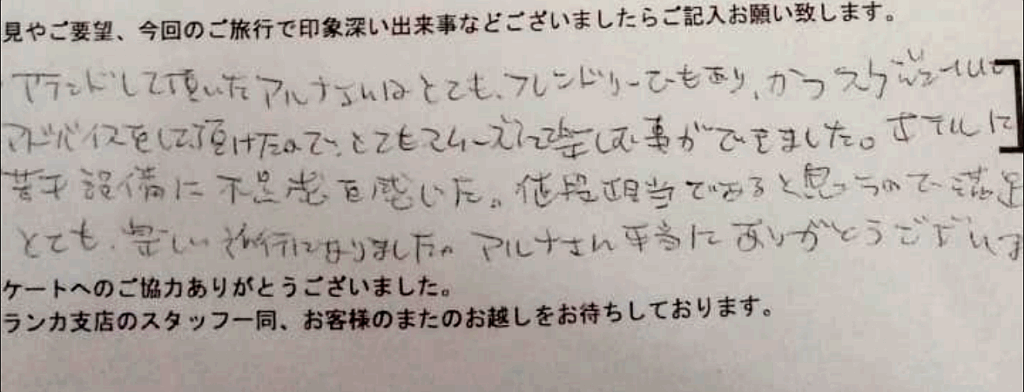 見やご要望、今回のご旅行で印象深い出来事などございましたらご記入お願い致します。
して頂いたアルナさんはとても、フレンドリーでもあり、かつ
アドバイスをして頂けたので、とてもスムーズに楽しむ事ができました。ホテルに
若干設備に不足感を感じた。値段相当であると思うので満足
とても、楽しい旅行になりました。アルナさん本当にありがとうございま
ケートへのご協力ありがとうございました。
ランカ支店のスタッフ一同、お客様のまたのお越しをお待ちしております。